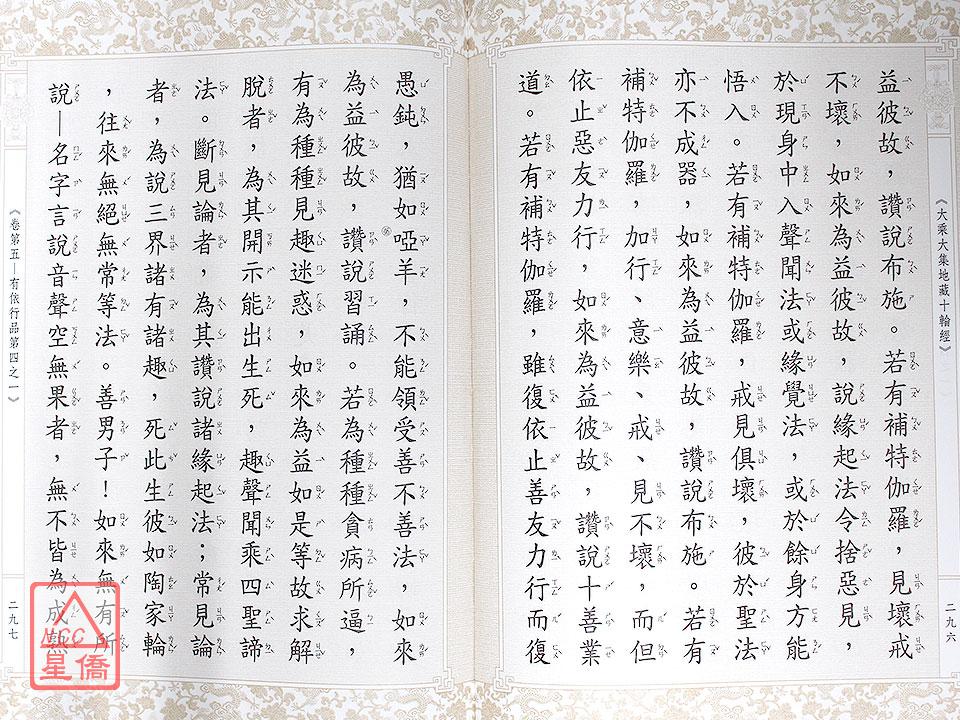 《大乘大集地藏十輪經》
益彼故，讚說布施。若有補特伽羅，見壞戒
不壞，如來為益彼故，說緣起法令捨惡見，
於現身中入聲聞法或緣覺法，或於餘身方能
悟入。若有補特伽羅，戒見俱壞，彼於聖法
亦不成器，如來為益彼故，讚說布施。若有
補特伽羅，加行、意樂、戒、見不壞，而但
依止惡友力行，如來為益彼故，讚說十善業
道。若有補特伽羅，雖復依止善友力行而復
二九六
愚鈍，猶如啞羊，不能領受善不善法，如來
為益彼故，讚說習誦。若為種種貪病所逼，
有為種種見趣迷惑，如來為益如是等故求解
脫者，為其開示能出生死，趣聲聞乘四聖諦
法。斷見論者，為其讚說諸緣起法；常見論
者，為說三界諸有諸趣，死此生彼如陶家輪
，往來無絕無常等法。善男子！如來無有所
說—名字言說音聲空無果者，無不皆為成熟
《卷第五—有依行品第四之一》
二九七
NCC
星僑